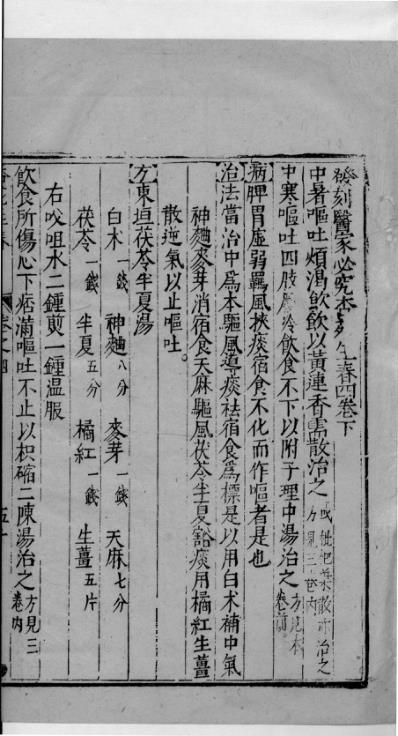 發刻醫家必究杏苑生春四卷下
中暑嘔吐煩渴飲飲以黃連香薷散治之或枇杷葉散亦治之方見三卷內
中寒嘔吐四肢厥冷飲食不下以附子理中湯治之方見本卷前
病脾胃虛弱羈風挾痰宿食不化而作嘔者是也
治法當治中爲本驅風導痰祛宿食爲標是以用白朮補中氣
神麯麥芽消宿食天麻驅風茯苓半夏豁痰用橘紅生薑
散逆氣以止嘔吐。
方東垣茯苓半夏湯
白朮一錢 神麯八分 麥芽一錢 天麻七分
茯苓一錢 半夏五分 橘紅一錢 生薑五片
右㕮咀水二鍾煎一鍾温服
飲食所傷心下痞滿嘔吐不止以枳縮二陳湯治之方見三卷內
卷之四